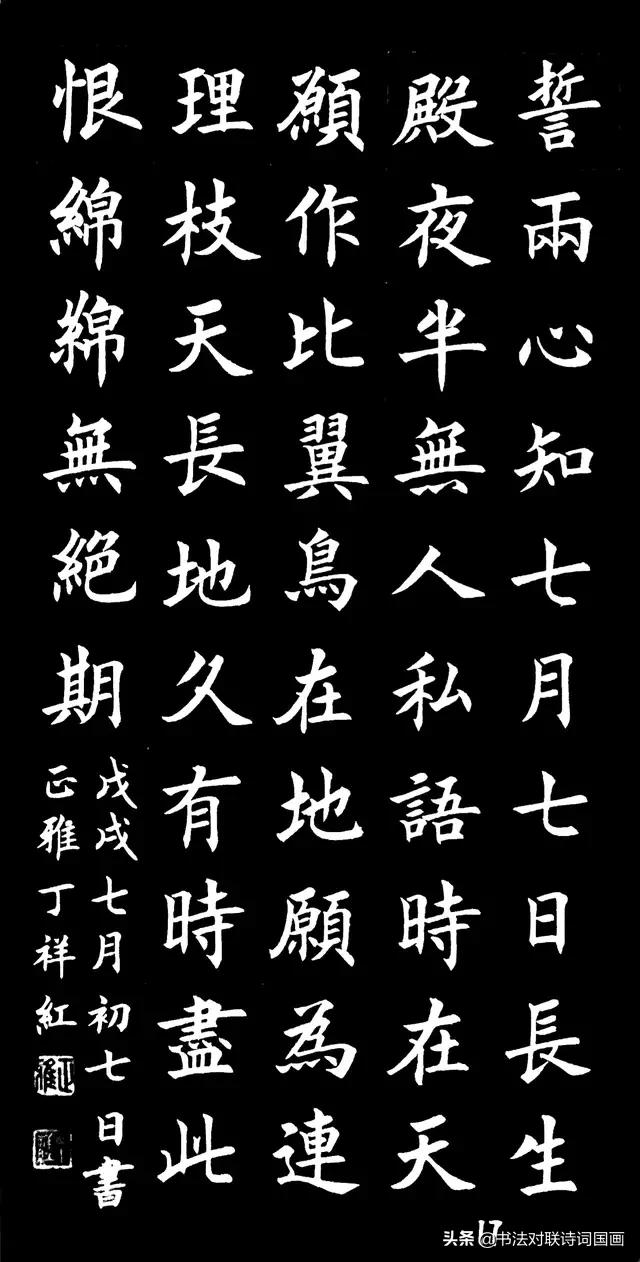 誓兩心知七月七日長生
殿夜半無人私語時在天
願作比翼鳥在地願為連
理枝天長地久有時盡此
恨綿綿無絶期
戊戌七月初七日書
正雅丁祥紅
17
头条 @书法对联诗词国画